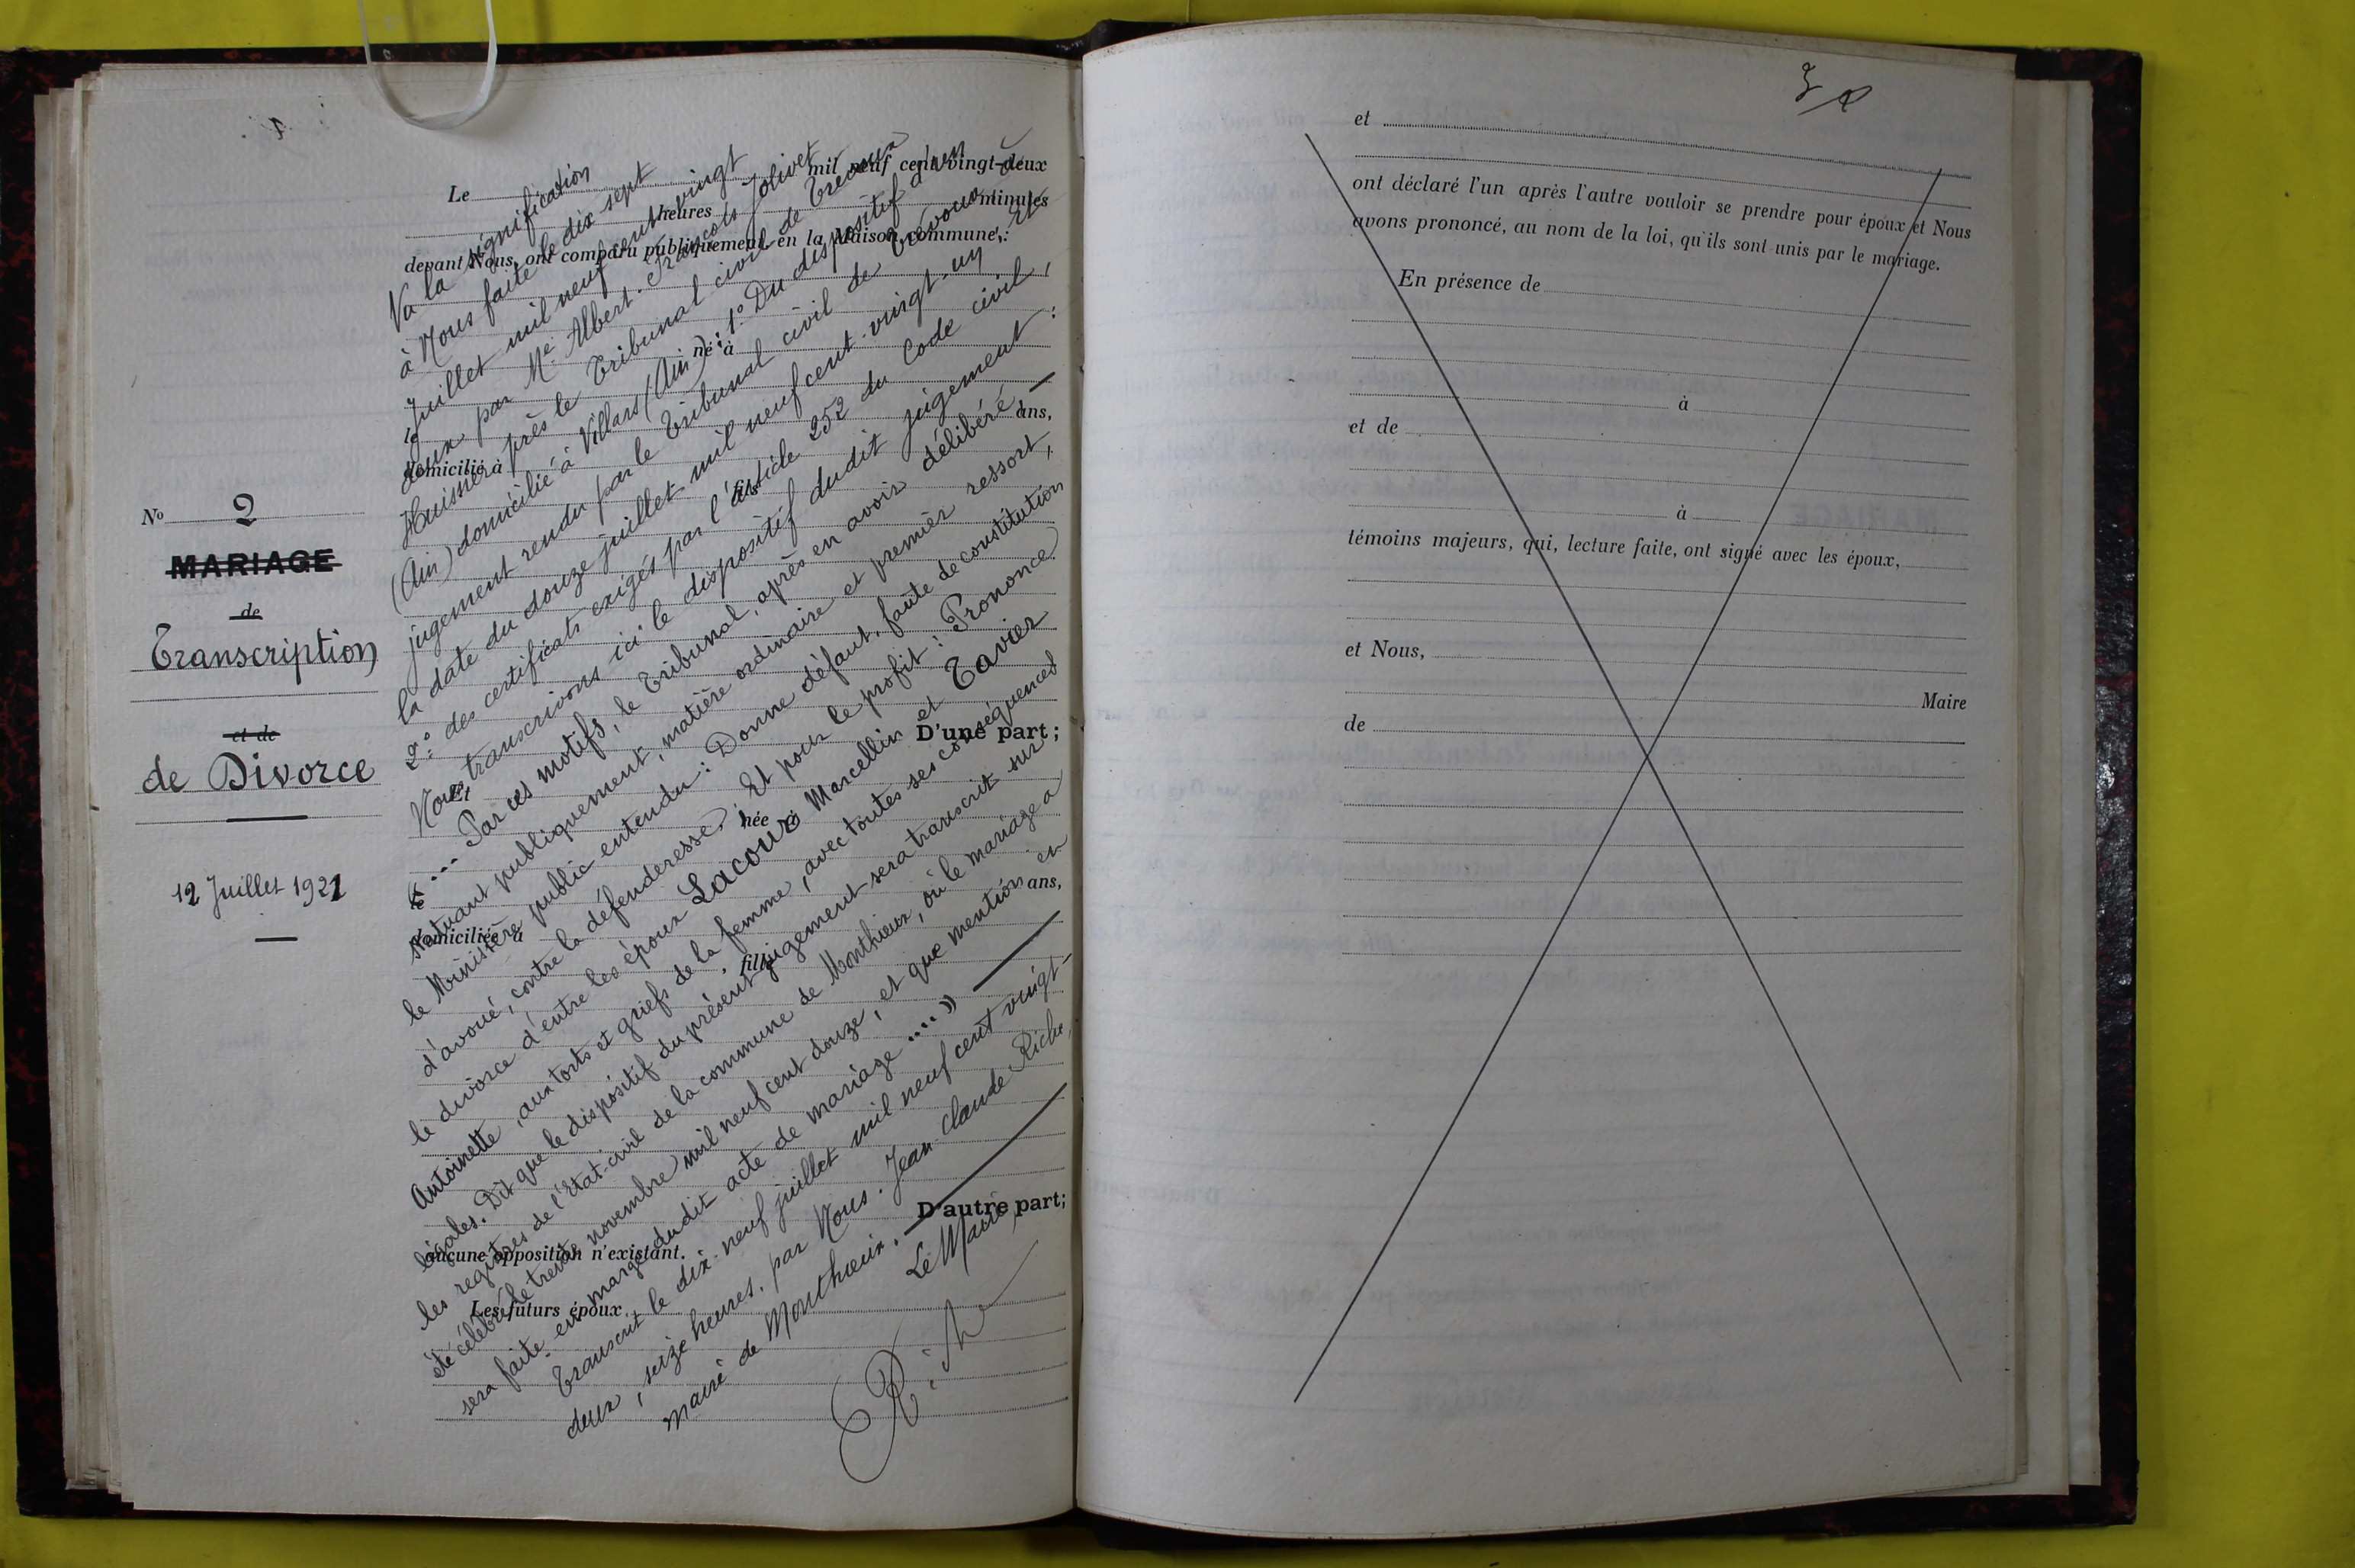 N° 2
MARIAGE
de
Transcription
et de
de Divorce
12 Juillet 1921
Le mil neuf cent vingt-deux
heures minutes
devant Nous, ont comparu publiquement en la Maison commune :
né à
le ans,
domicilié à
fils
D'une part ;
Et
née à
le ans,
domiciliée à
fille
D'autre part ;
aucune opposition n'existant.
Les futurs époux
Vu la signification
à Nous faite le dix sept
Juillet mil neuf cent vingt
deux par Me Albert-François Jolivet
Huissier près le Tribunal civil de Trévoux
(Ain) domicilié à Villars (Ain) : 1° Du dispositif d'un
jugement rendu par le Tribunal civil de Trévoux à
la date du douze juillet mil neuf cent vingt-un, Et
2° des certificats exigés par l'article 252 du Code civil,
Nous transcrivons ici le dispositif dudit jugement :
« .... Par ces motifs, le Tribunal, après en avoir délibéré,
statuant publiquement, matière ordinaire et premier ressort,
le Ministère public entendu : Donne défaut, faute de constitution
d'avoué, contre la défenderesse ! Et pour le profit : Prononce
le divorce d'entre les époux Lacour Marcellin et Tavier
Antoinette, aux torts et griefs de la femme, avec toutes ses conséquences
légales. Dit que le dispositif du présent jugement sera transcrit sur
les registres de l'Etat-civil de la commune de Monthieux, où le mariage a
été célébré le trente novembre mil neuf cent douze, et que mention en
sera faite en marge dudit acte de mariage .... »
Transcrit le dix-neuf juillet mil neuf cent vingt-
deux, seize heures, par Nous. Jean Claude Riche,
maire de Monthieux.
Le Maire,
Riche
et
ont déclaré l'un après l'autre vouloir se prendre pour époux et Nous
avons prononcé, au nom de la loi, qu'ils sont unis par le mariage.
En présence de
à
et de
à
témoins majeurs, qui, lecture faite, ont signé avec les époux,
et Nous,
Maire
de